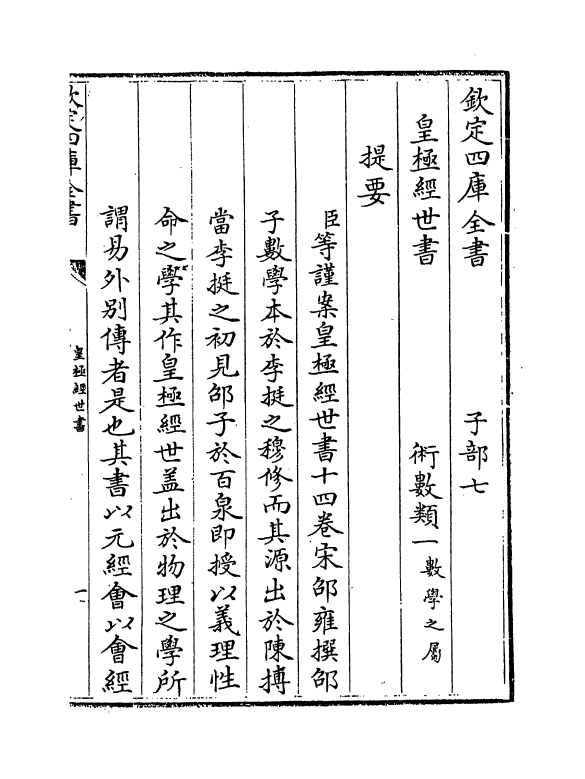 欽定四庫全書　子部七
皇極經世書　術數類一數學之屬
提要
臣等謹案皇極經世書十四卷宋邵雍撰邵
子數學本於李挺之穆修而其源出於陳摶
當李挺之初見邵子於百泉即授以義理性
命之學其作皇極經世盖出於物理之學所
謂易外別傳者是也其書以元經會以會經
欽定四庫全書
皇極經世書
一